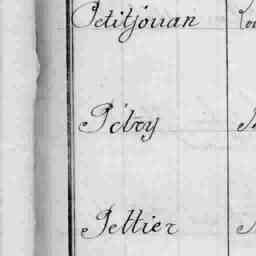 Petitjouan
Pétry
Peltier